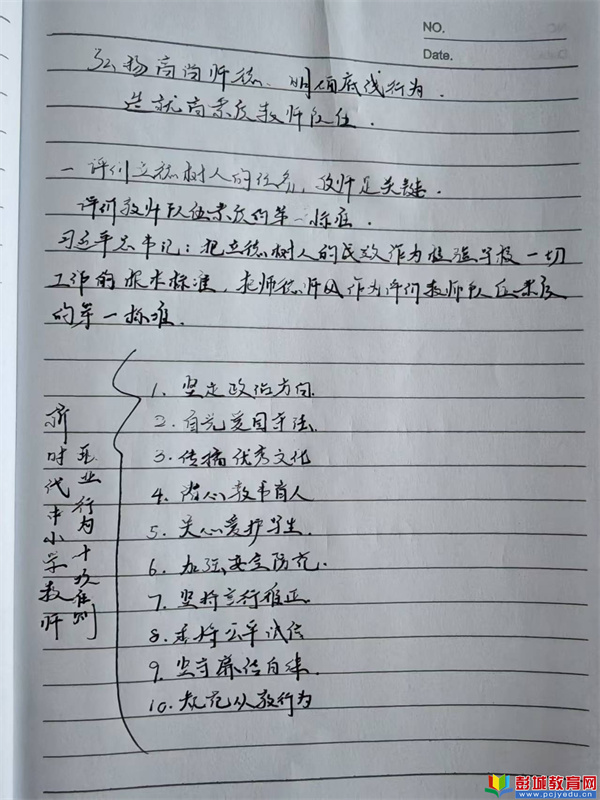 NO.
Date.
弘扬高尚师德、明值底线行为.
造就高素质教师队伍.
一 评价立德树人的任务,教师是关键.
评价教师队伍素质的第一标准.
习近平总书记:把立德树人的成效作为检验学校一切
工作的根本标准,老师德师风作为评价教师队伍素质
的第一标准.
新时代中小学教师
职业行为十项准则
1. 坚定政治方向.
2. 自觉爱国守法.
3. 传播优秀文化
4. 潜心教书育人
5. 关心爱护学生.
6. 加强安全防范.
7. 坚持言行雅正.
8. 秉持公平诚信
9. 坚守廉洁自律.
10. 规范从教行为
彭城教育网
www.pcjyedu.cn